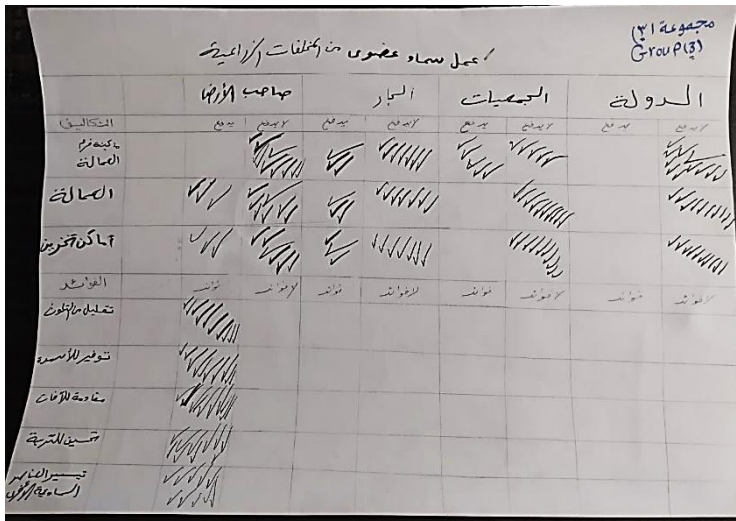 مجموعة (٣)
Group (3)
عمل سماد عضوى من المخلفات الزراعية
صاحب الأرض التجار الجمعيات الدولة
التكاليف يدفع لايدفع يدفع لايدفع يدفع لايدفع يدفع لايدفع
ماكينه فرم
العمالة
العمالة
أماكن تخزين
الفوائد فوائد لافوائد فوائد لافوائد فوائد لافوائد فوائد لافوائد
تقليل من التلوث
توفير للأسمدة
مقاومة للآفات
تحسين للتربة
تيسير العناصر